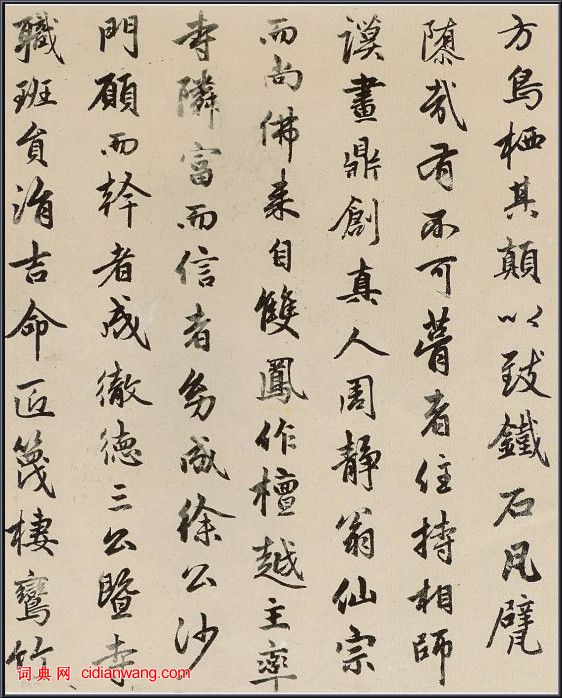 方鳥栖其顛以致鐵石凡甓
隳哉有不可瞢者住持相師
謨畫鼎創真人周靜翁仙宗
而尚佛来自雙鳳作檀越主率
寺隣富而信者成徐公沙
門願而幹者成徹德三公暨寺
職班貟涓吉命匠篾棲鸞竹
词典网 cidianwang.com